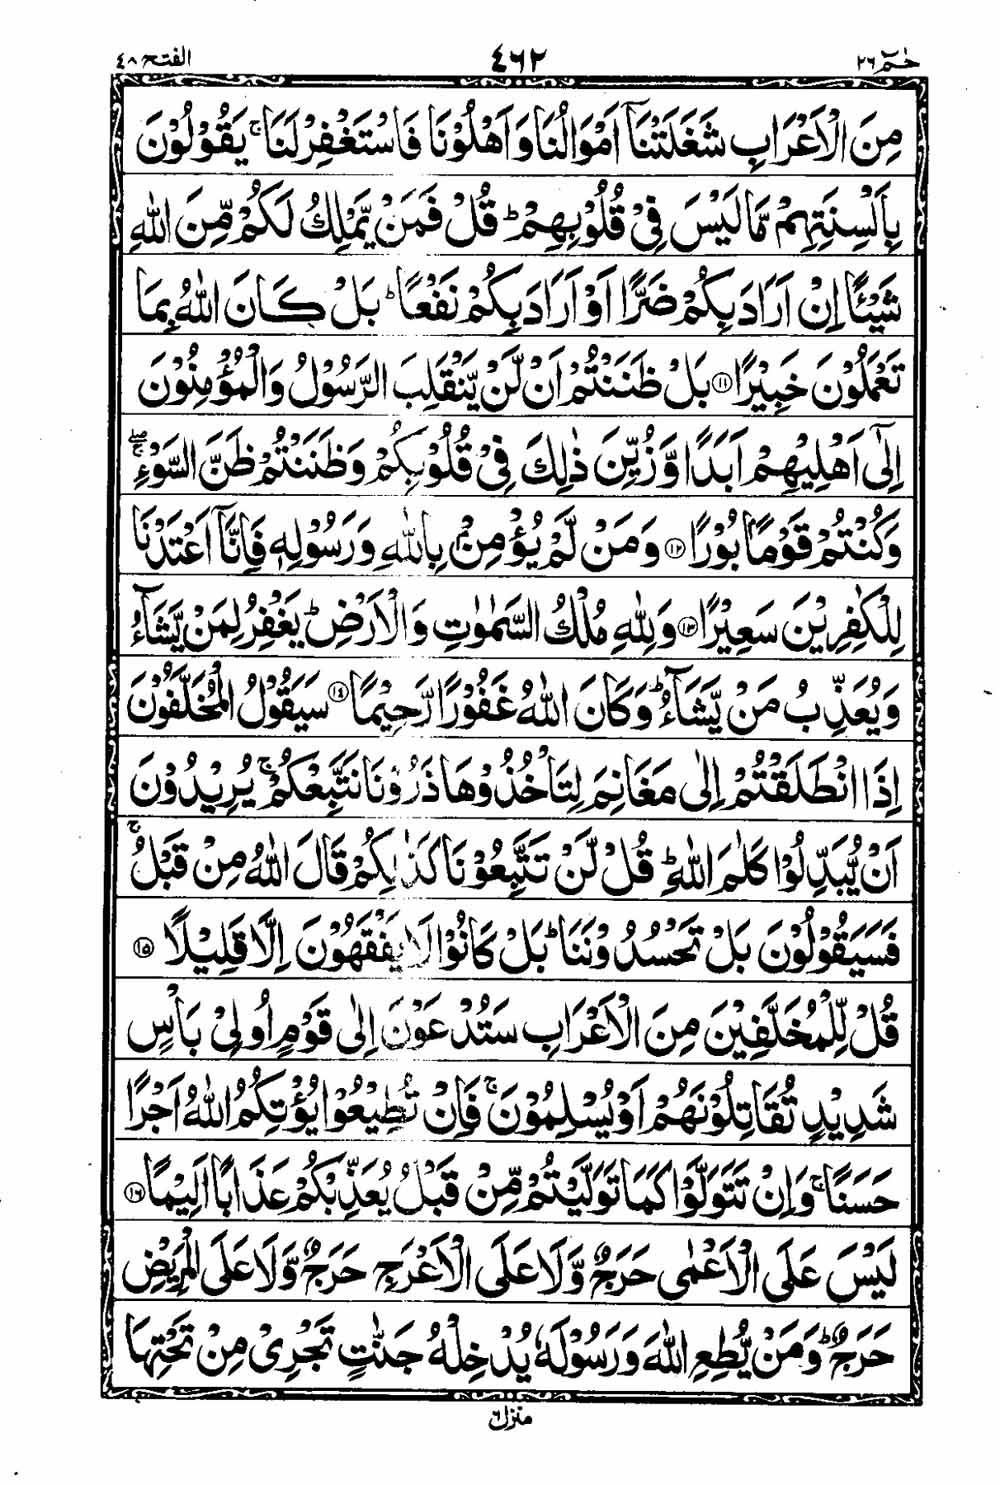 حٰمٓ ٢٦ ٤٦٢ الفتح ٤٨
مِنَ الْاَعْرَابِ شَغَلَتْنَاۤ اَمْوَالُنَا وَاَهْلُوْنَا فَاسْتَغْفِرْ لَنَا ۚ يَقُوْلُوْنَ
بِاَلْسِنَتِهِمْ مَّا لَيْسَ فِيْ قُلُوْبِهِمْ ؕ قُلْ فَمَنْ يَّمْلِكُ لَكُمْ مِّنَ اللّٰهِ
شَيْـًٔا اِنْ اَرَادَ بِكُمْ ضَرًّا اَوْ اَرَادَ بِكُمْ نَفْعًا ؕ بَلْ كَانَ اللّٰهُ بِمَا
تَعْمَلُوْنَ خَبِيْرًا ⑪ بَلْ ظَنَنْتُمْ اَنْ لَّنْ يَّنْقَلِبَ الرَّسُوْلُ وَالْمُؤْمِنُوْنَ
اِلٰۤى اَهْلِيْهِمْ اَبَدًا وَّزُيِّنَ ذٰلِكَ فِيْ قُلُوْبِكُمْ وَظَنَنْتُمْ ظَنَّ السَّوْءِ ۖۚ
وَكُنْتُمْ قَوْمًا بُوْرًا ⑫ وَمَنْ لَّمْ يُؤْمِنْۢ بِاللّٰهِ وَرَسُوْلِهٖ فَاِنَّاۤ اَعْتَدْنَا
لِلْكٰفِرِيْنَ سَعِيْرًا ⑬ وَلِلّٰهِ مُلْكُ السَّمٰوٰتِ وَالْاَرْضِ ؕ يَغْفِرُ لِمَنْ يَّشَآءُ
وَيُعَذِّبُ مَنْ يَّشَآءُ ؕ وَكَانَ اللّٰهُ غَفُوْرًا رَّحِيْمًا ⑭ سَيَقُوْلُ الْمُخَلَّفُوْنَ
اِذَا انْطَلَقْتُمْ اِلٰى مَغَانِمَ لِتَاْخُذُوْهَا ذَرُوْنَا نَتَّبِعْكُمْ ۚ يُرِيْدُوْنَ
اَنْ يُّبَدِّلُوْا كَلٰمَ اللّٰهِ ؕ قُلْ لَّنْ تَتَّبِعُوْنَا كَذٰلِكُمْ قَالَ اللّٰهُ مِنْ قَبْلُ ۚ
فَسَيَقُوْلُوْنَ بَلْ تَحْسُدُوْنَنَا ؕ بَلْ كَانُوْا لَا يَفْقَهُوْنَ اِلَّا قَلِيْلًا ⑮
قُلْ لِّلْمُخَلَّفِيْنَ مِنَ الْاَعْرَابِ سَتُدْعَوْنَ اِلٰى قَوْمٍ اُولِيْ بَاْسٍ
شَدِيْدٍ تُقَاتِلُوْنَهُمْ اَوْ يُسْلِمُوْنَ ۚ فَاِنْ تُطِيْعُوْا يُؤْتِكُمُ اللّٰهُ اَجْرًا
حَسَنًا ۚ وَاِنْ تَتَوَلَّوْا كَمَا تَوَلَّيْتُمْ مِّنْ قَبْلُ يُعَذِّبْكُمْ عَذَابًا اَلِيْمًا ⑯
لَيْسَ عَلَى الْاَعْمٰى حَرَجٌ وَّلَا عَلَى الْاَعْرَجِ حَرَجٌ وَّلَا عَلَى الْمَرِيْضِ
حَرَجٌ ؕ وَمَنْ يُّطِعِ اللّٰهَ وَرَسُوْلَهٗ يُدْخِلْهُ جَنّٰتٍ تَجْرِيْ مِنْ تَحْتِهَا
منزل ٦